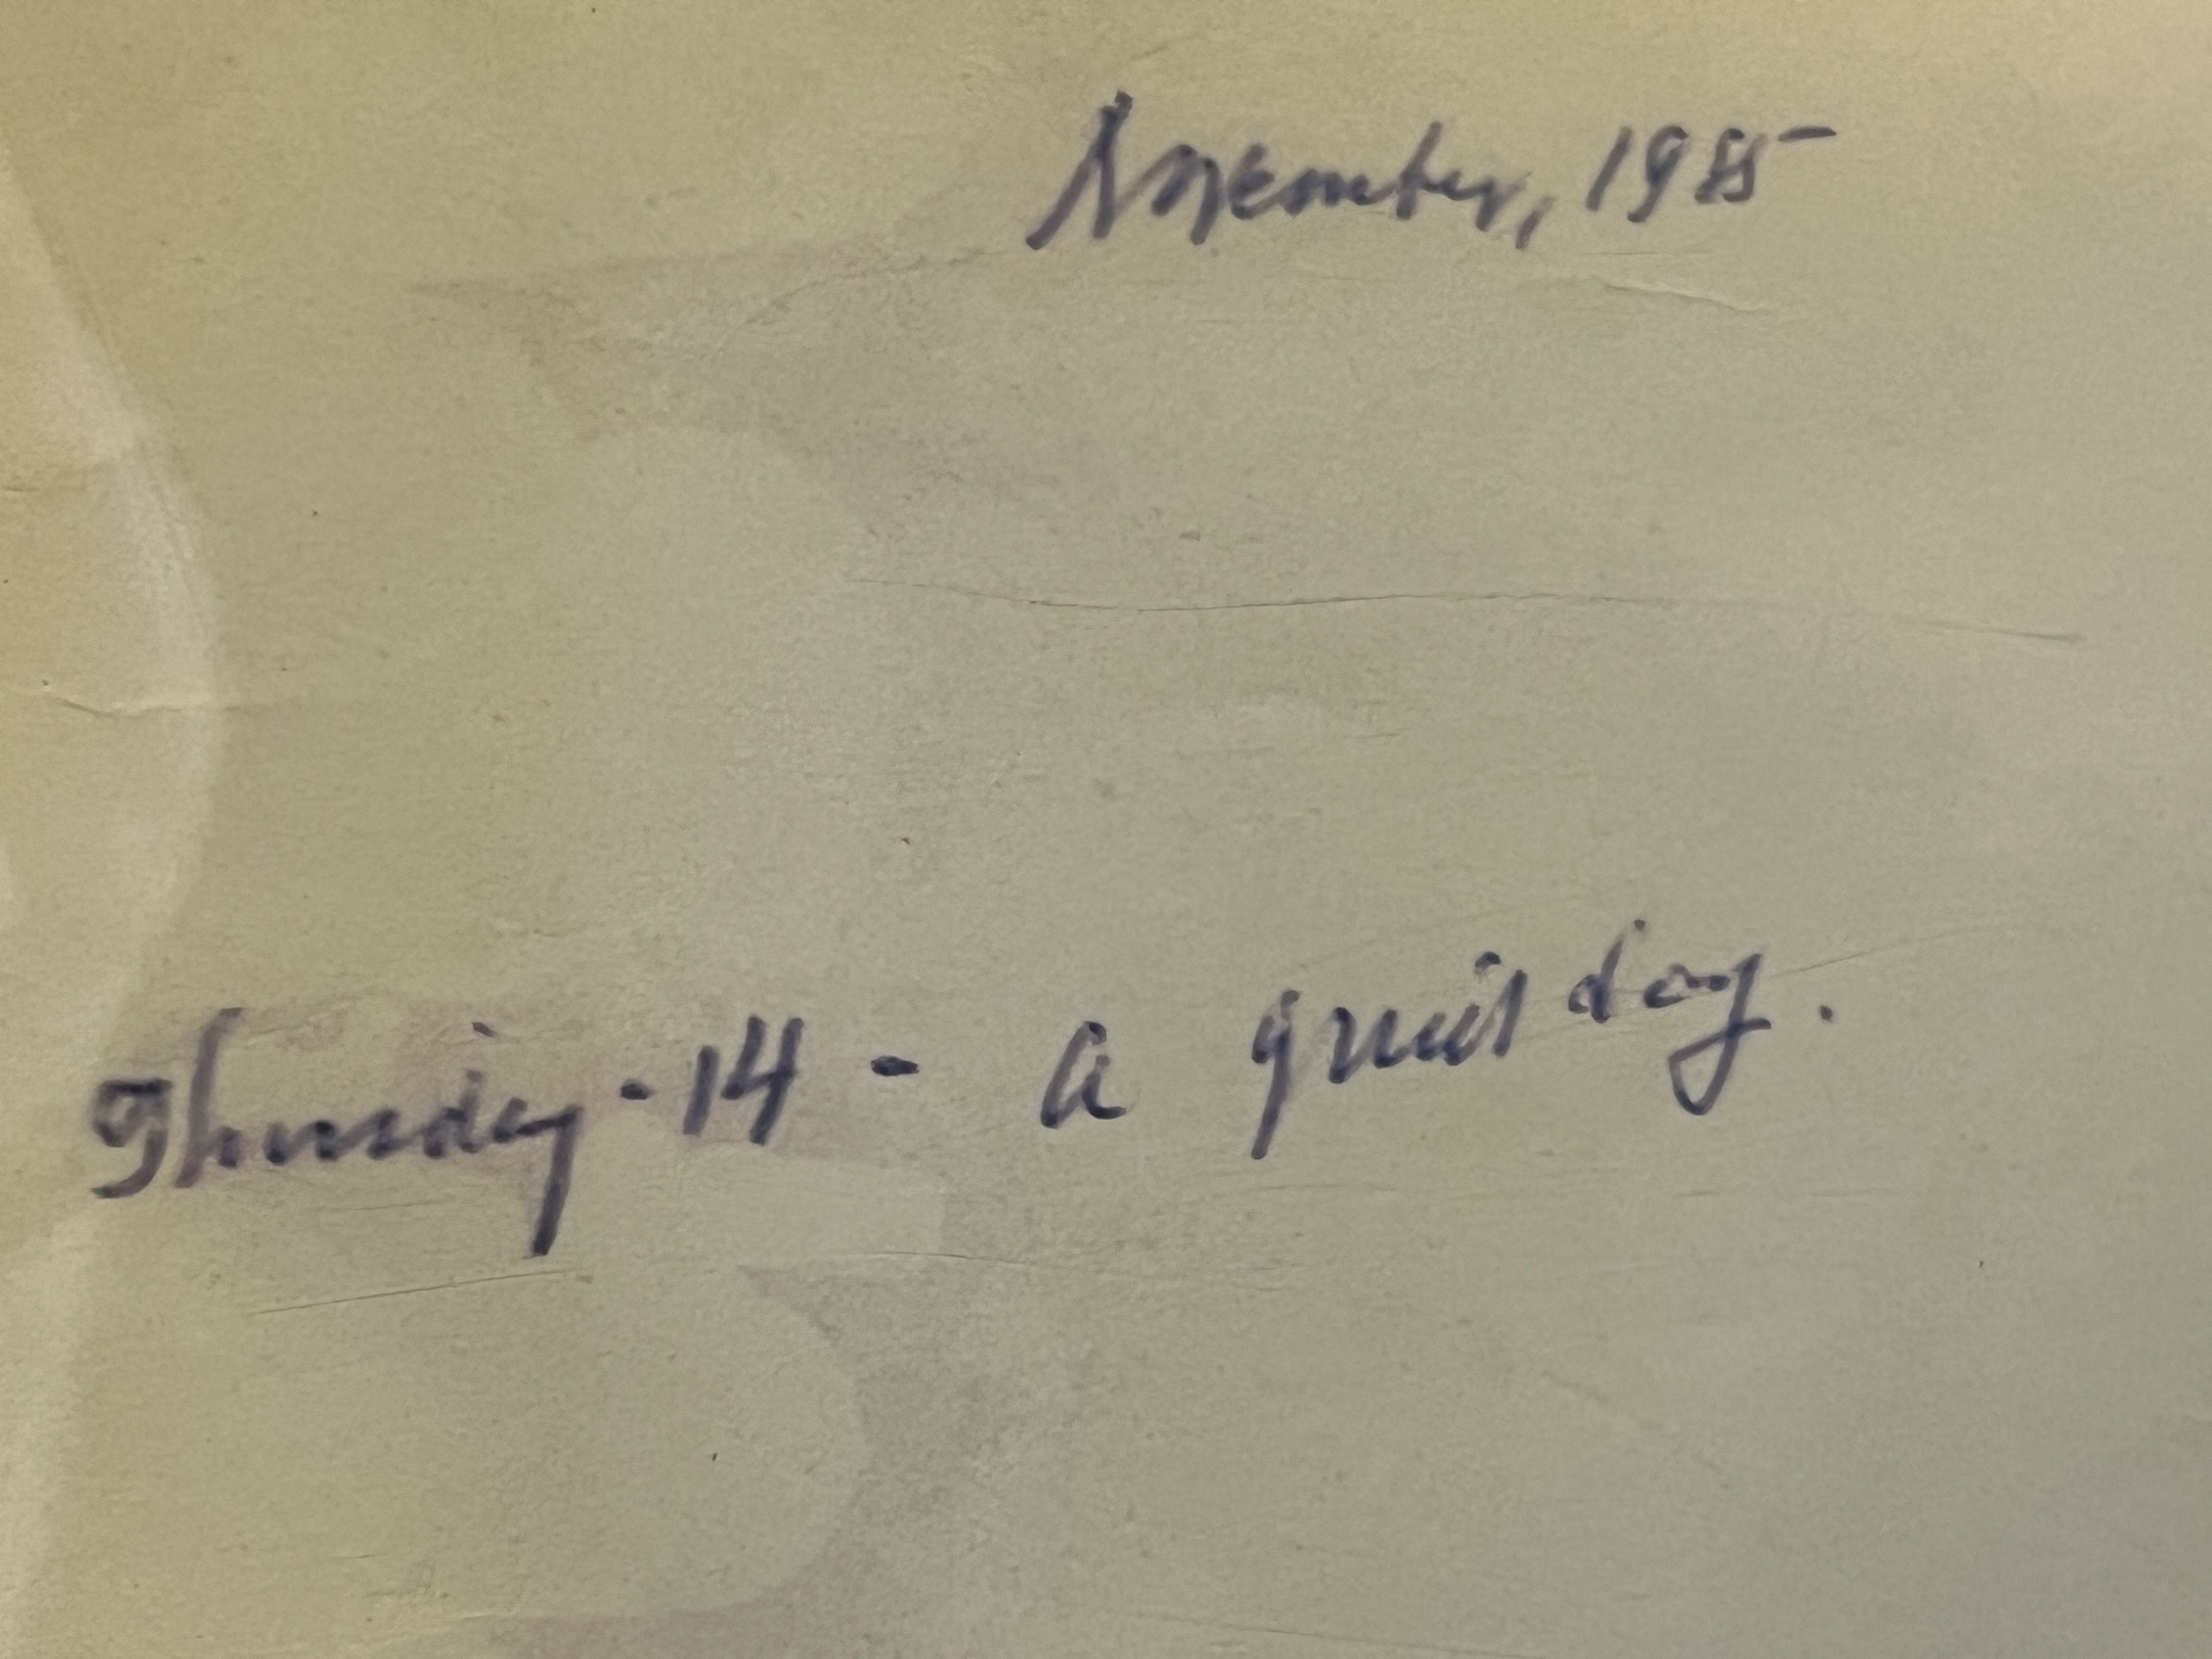 November, 1985
Thursday - 14 - a quiet day.